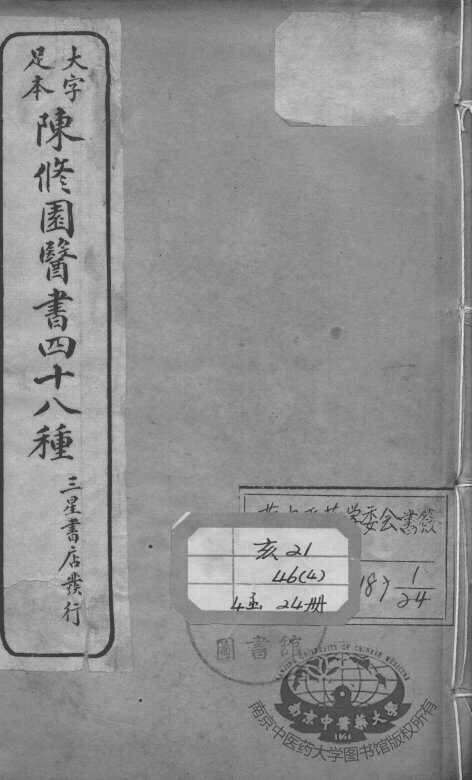 大字
足本
陳修園醫書四十八種
三星書店發行
学委会書籤
亥21
46(4)
4函 24册
187 1/24
圖書館
NANJING UNIVERSITY OF CHINESE MEDICINE
南京中醫藥大學
1954
南京中医药大学图书馆版权所有